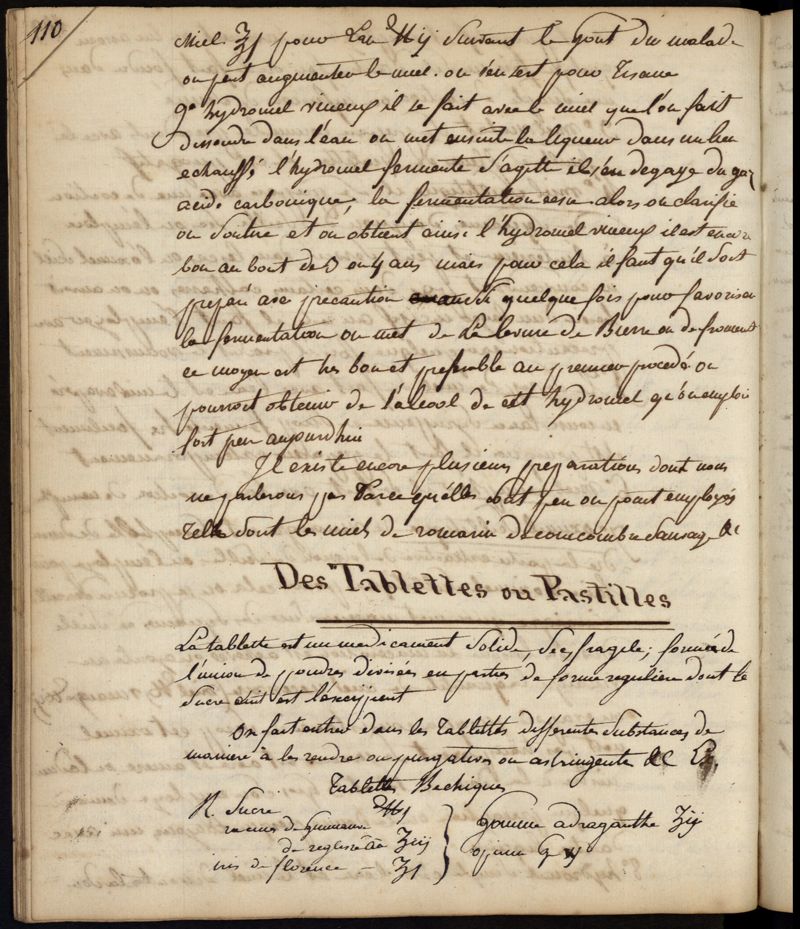 110
Miel ʒj pour Eau ℔ij Suivant le Gout du malade
on peut augmenter le miel. on s'en sert pour Tisane
2° hydromel vineux il se fait avec le miel que l'on fait
dissoudre dans l'eau on met ensuite la liqueur dans un lieu
echauffé l'hydromel fermente s'agitte il s'en degage du gaz
acide carbonique, la fermentation cesse alors on clarifie
on Soutire et on obtient ainsi l'hydromel vineux il est encore
bon au bout de 3 ou 4 ans mais pour cela il faut qu'il soit
preparé avec precaution quelque fois pour favoriser
la fermentation on met de la levure de Bierre ou de froment
ce moyen est tres bon et preferable au premier procedé on
pourroit obtenir de l'alcool de cet hydromel qu'on emploi
fort peu aujourdhui
Il existe encore plusieurs preparations dont nous
ne parlerons pas Parce qu'elles sont peu ou point employés
Telle sont les miels de romarin de concombre Sauvage &c
Des Tablettes ou Pastilles
La tablette est un medicament Solide, Sec fragile; formée de
l'union de poudres divisées en parties de forme reguliere dont le
Sucre est l'excipient
On fait entrer dans les Tablettes differentes Substances de
maniere à les rendre ou purgatives ou astringente &c Ex.
Tablettes Bechiques
R. Sucre ℔j
racines de Guimauve
de reglisse āā ʒiij
iris de florence — ʒj
Gomme adraganthe ʒij
opium